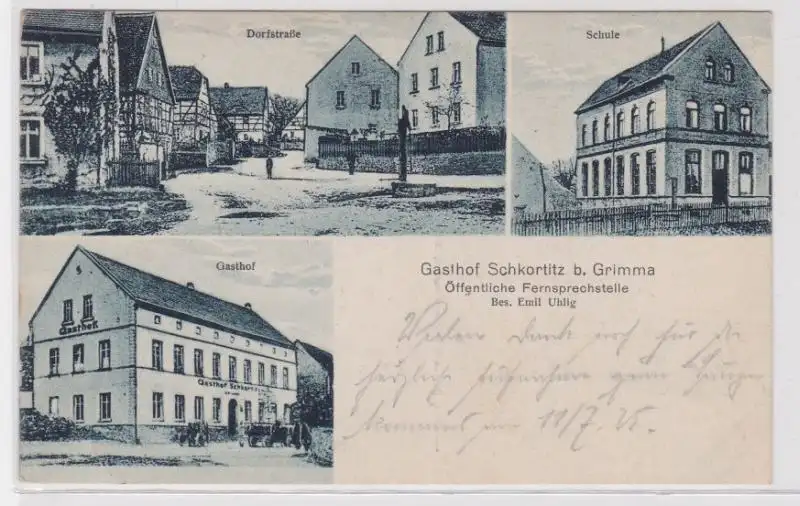 Dorfstraße
Schule
Gasthof
Gasthof
Gasthof Schkortitz
Gasthof Schkortitz b. Grimma
Öffentliche Fernsprechstelle
Bes. Emil Uhlig
Vielen Dank noch für die
herzliche Aufnahme
am 11/7.25.